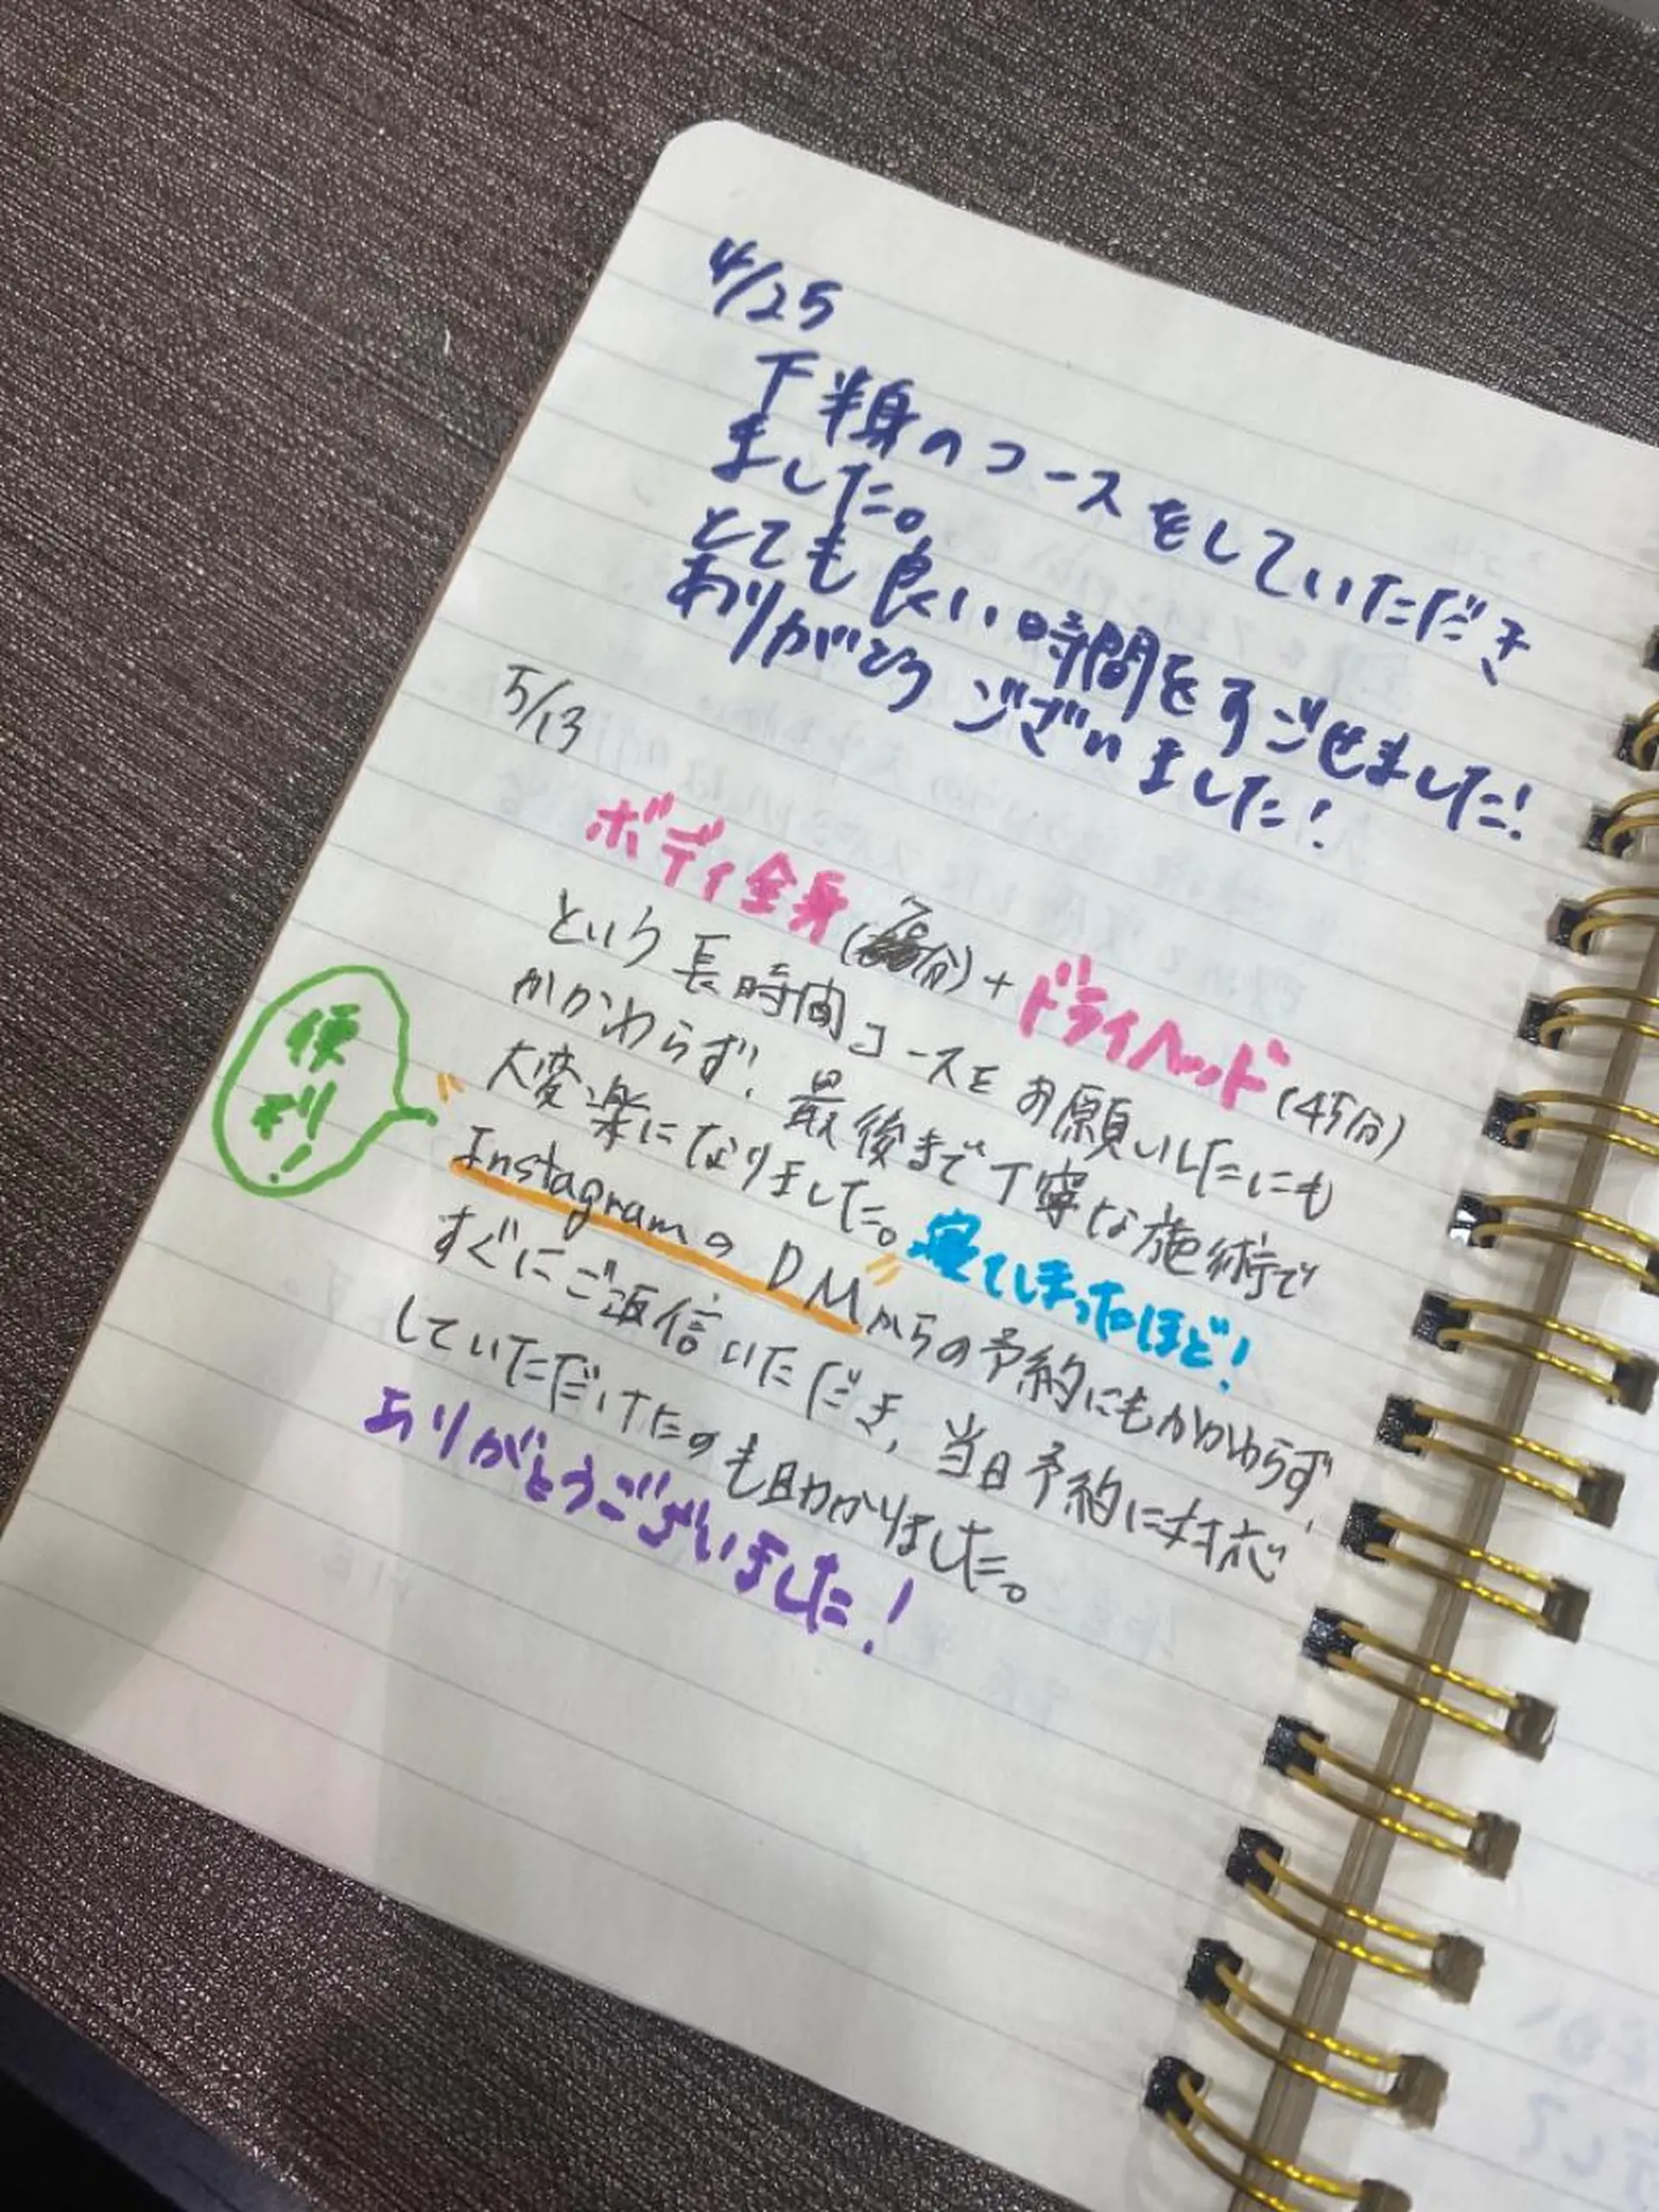 4/25
下半身のコースをしていただき
ました。
とても良い時間をすごせました!
ありがとうございました!
5/13
ボディ全身(分)+ドライヘッド(45分)
という長時間コースをお願いしたにも
かかわらず!最後まで丁寧な施術で
大変楽になりました。寝てしまったほど!
便利!
InstagramのDMからの予約にもかかわらず、
すぐにご返信いただき、当日予約に対応
していただけたのも助かりました。
ありがとうございました!